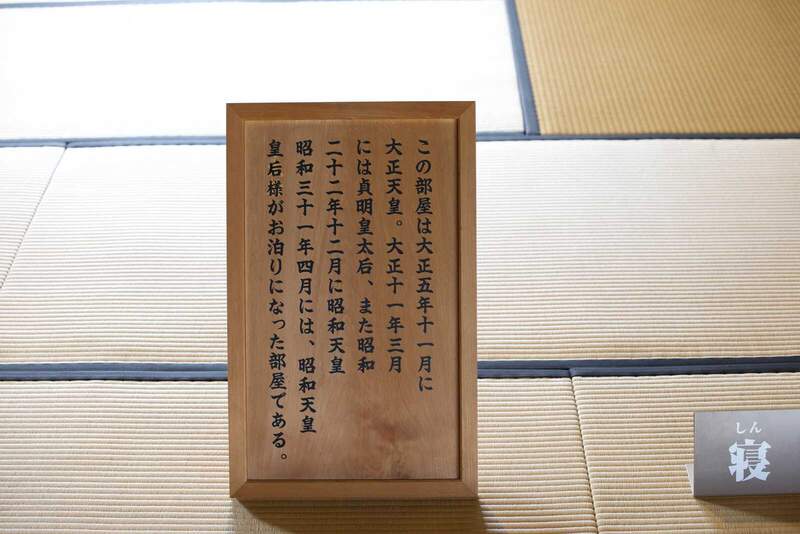 この部屋は大正五年十一月に
大正天皇。大正十一年三月
には貞明皇太后、また昭和
二十二年十二月に昭和天皇
昭和三十一年四月には、昭和天皇
皇后様がお泊りになった部屋である。
しん
寝